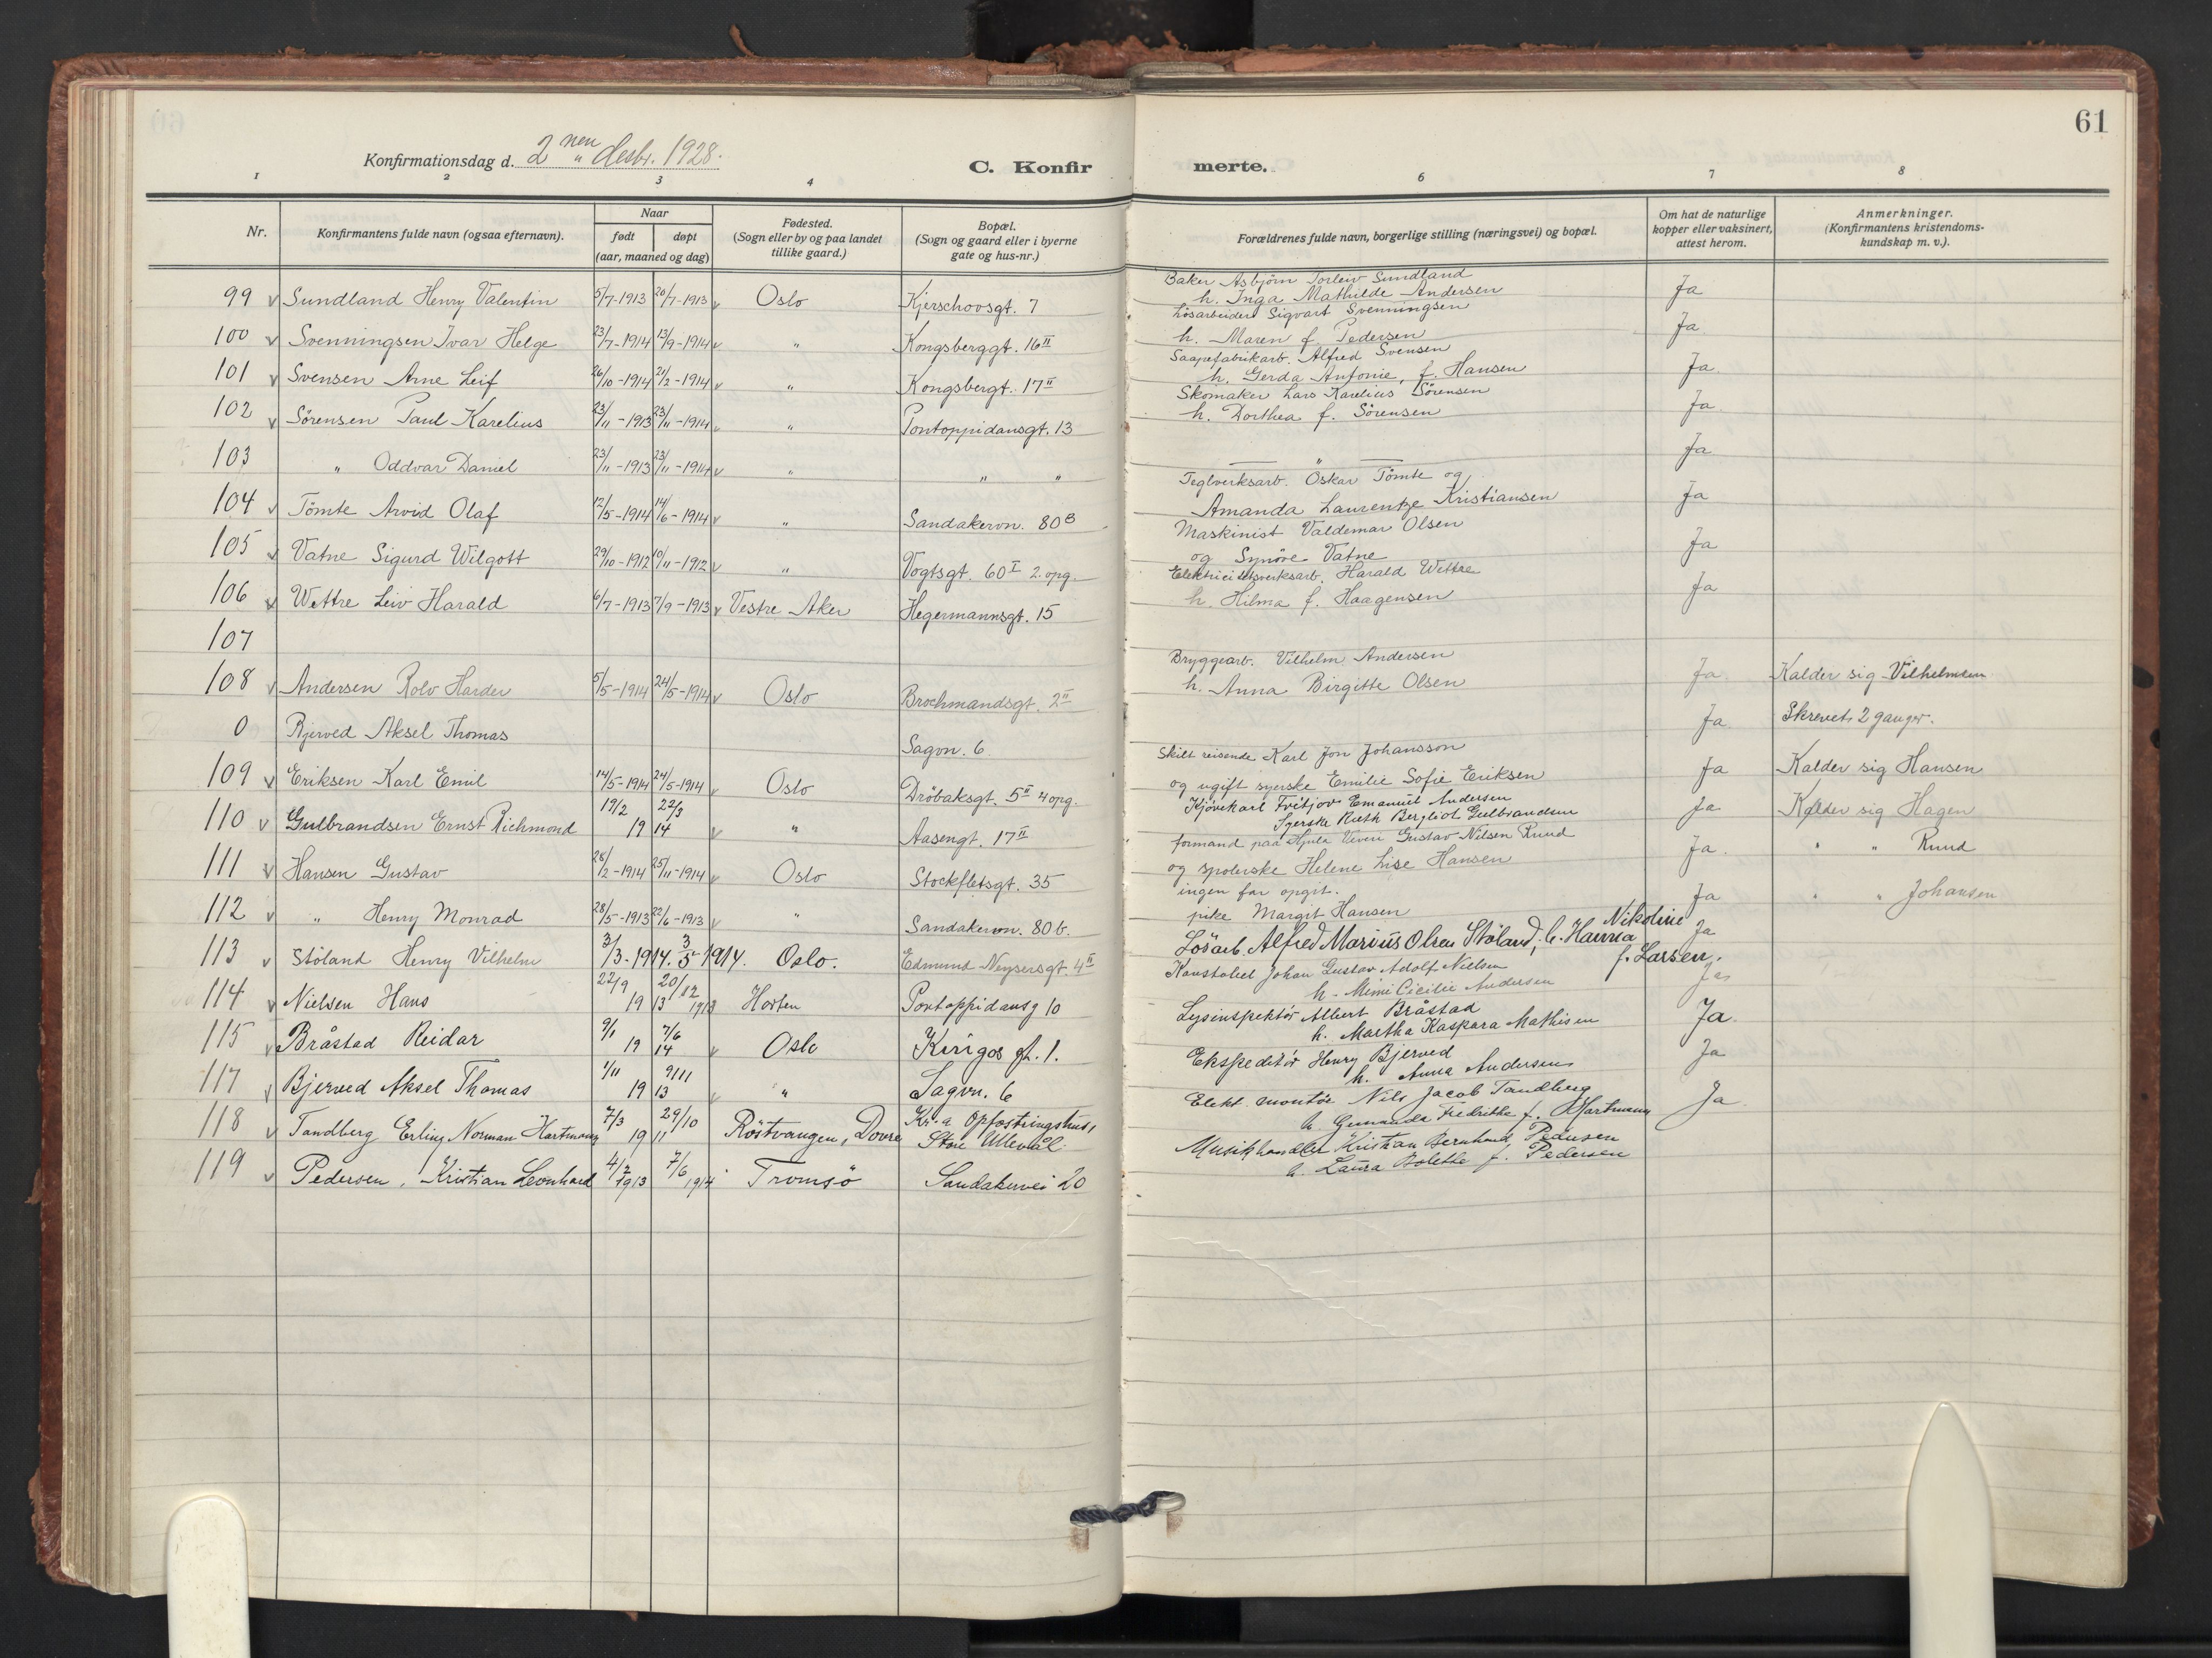 61
Konfirmationsdag d. 2nen desbr. 1928.
C. Konfir merte.
1 2 3 4 6 7 8
Nr. Konfirmantens fulde navn (ogsaa efternavn). Naar født døpt (aar, maaned og dag) Fødested. (Sogn eller by og paa landet tillike gaard.) Bopæl. (Sogn og gaard eller i byerne gate og hus-nr.) Forældrenes fulde navn, borgerlige stilling (næringsvei) og bopæl. Om hat de naturlige kopper eller vaksinert, attest herom. Anmerkninger. (Konfirmantens kristendoms-kundskap m. v.).
99 v Sundland Henry Valentin 5/7-1913 20/7-1913 v Oslo Kjerschovsgt. 7 Baker Asbjørn Torleiv Sundland h. Inga Mathilde Andersen Ja
100 v Svenningsen Ivar Helge 23/7-1914 13/9-1914 v " Kongsberggt. 16 II Løsarbeider Sigvart Svenningsen h. Maren f. Pedersen Ja
101 v Svensen Arne Leif 26/10-1914 21/2-1914 v " Kongsbergt. 17 II Saapefabrikarb. Alfred Svensen h. Gerda Antonie, f. Hansen Ja
102 v Sörensen Paul Karelius 23/11-1913 23/11-1914 v " Pontoppidansgt. 13 Skomaker Lars Karelius Sörensen h. Dorthea f. Sörensen Ja
103 " Oddvar Daniel 23/11-1913 23/11-1914 v " " " — " — Ja
104 v Tömte Arvid Olaf 12/5-1914 14/6-1914 v " Sandakervn. 80 B Teglverksarb. Oskar Tömte og Amanda Laurentze Kristiansen Ja
105 v Vatne Sigurd Wilgott 29/10-1912 10/11-1912 v " Vogtsgt. 60 I 2. opg. Maskinist Valdemar Olsen og Synöve Vatne Ja
106 v Wettre Leiv Harald 6/7-1913 7/9-1913 v Vestre Aker Hegermannsgt. 15 Elektricitetsverksarb. Harald Wettre h. Hilma f. Haagensen Ja
107
108 v Andersen Rolv Harder 5/5-1914 24/5-1914 v Oslo Brochmandsgt. 2 II Bryggearb. Vilhelm Andersen h. Anna Birgitte Olsen Ja Kalder sig Vilhelmsen
0 Bjerved Aksel Thomas Sagvn. 6 Ja Skrevet 2 ganger.
109 v Eriksen Karl Emil 14/5-1914 24/5-1914 v Oslo Dröbaksgt. 5 II 4 opg. Skilt reisende Karl Jon Johansson og ugift syerske Emilie Sofie Eriksen Ja Kalder sig Hansen
110 v Gulbrandsen Ernst Richmond 19/2 22/3 19 14 v " Aasengt. 17 II Kjörekarl Fritjov Emanuel Andersen Syerske Ruth Bergliot Gulbrandsen Ja Kalder sig Hagen
111 v Hansen Gustav 28/2-1914 25/11-1914 v Oslo Stockfletsgt. 35 formand paa Hjula Væveri Gustav Nilsen Ruud og spolerske Helene Lise Hansen Ja. " " Ruud
112 v " Henry Monrad 28/5-1913 22/6-1913 v " Sandakervn. 80 b. ingen far opgit. pike Margit Hansen Ja " " Johansen
113 v Stöland Henry Vilhelm 3/3-1914. 3/5 1914. Oslo. Edmund Neupersgt. 4 II Lösarb. Alfred Marius Olsen Stöland, h. Hanna Nikoline f. Larsen. Ja
114 v Nielsen Hans 22/9 1913 20/12 1913 Horten Pontoppidansg 10 Konstabel Johan Gustav Adolf Nielsen h. Mimi Cicilie Andersen Ja
115 v Bråstad Reidar 9/1 7/6 19 14 v Oslo Kirigos gt. 1. Lysinspektör Albert Bråstad h. Martha Kaspara Mathisen Ja
117 v Bjerved Aksel Thomas 1/11 9/11 19 13 v " Sagvn. 6 Ekspeditör Henry Bjerved h. Anna Andersen Ja
118 v Tandberg Erling Norman Hartmann 7/3 29/10 19 11 Röstvangen, Dovre Kr.a Opfostringshus, Store Ullevål. Elekt. montör Nils Jacob Tandberg h. Gunanda Fredrikke f. Hartmann Ja
119 v Pedersen, Kristian Leonhard 4/2 1913 7/6 1914 Tromsö Sandakervei 20 Musikhandler Kristian Bernhard Pedersen h. Laura Bolethe f. Pedersen